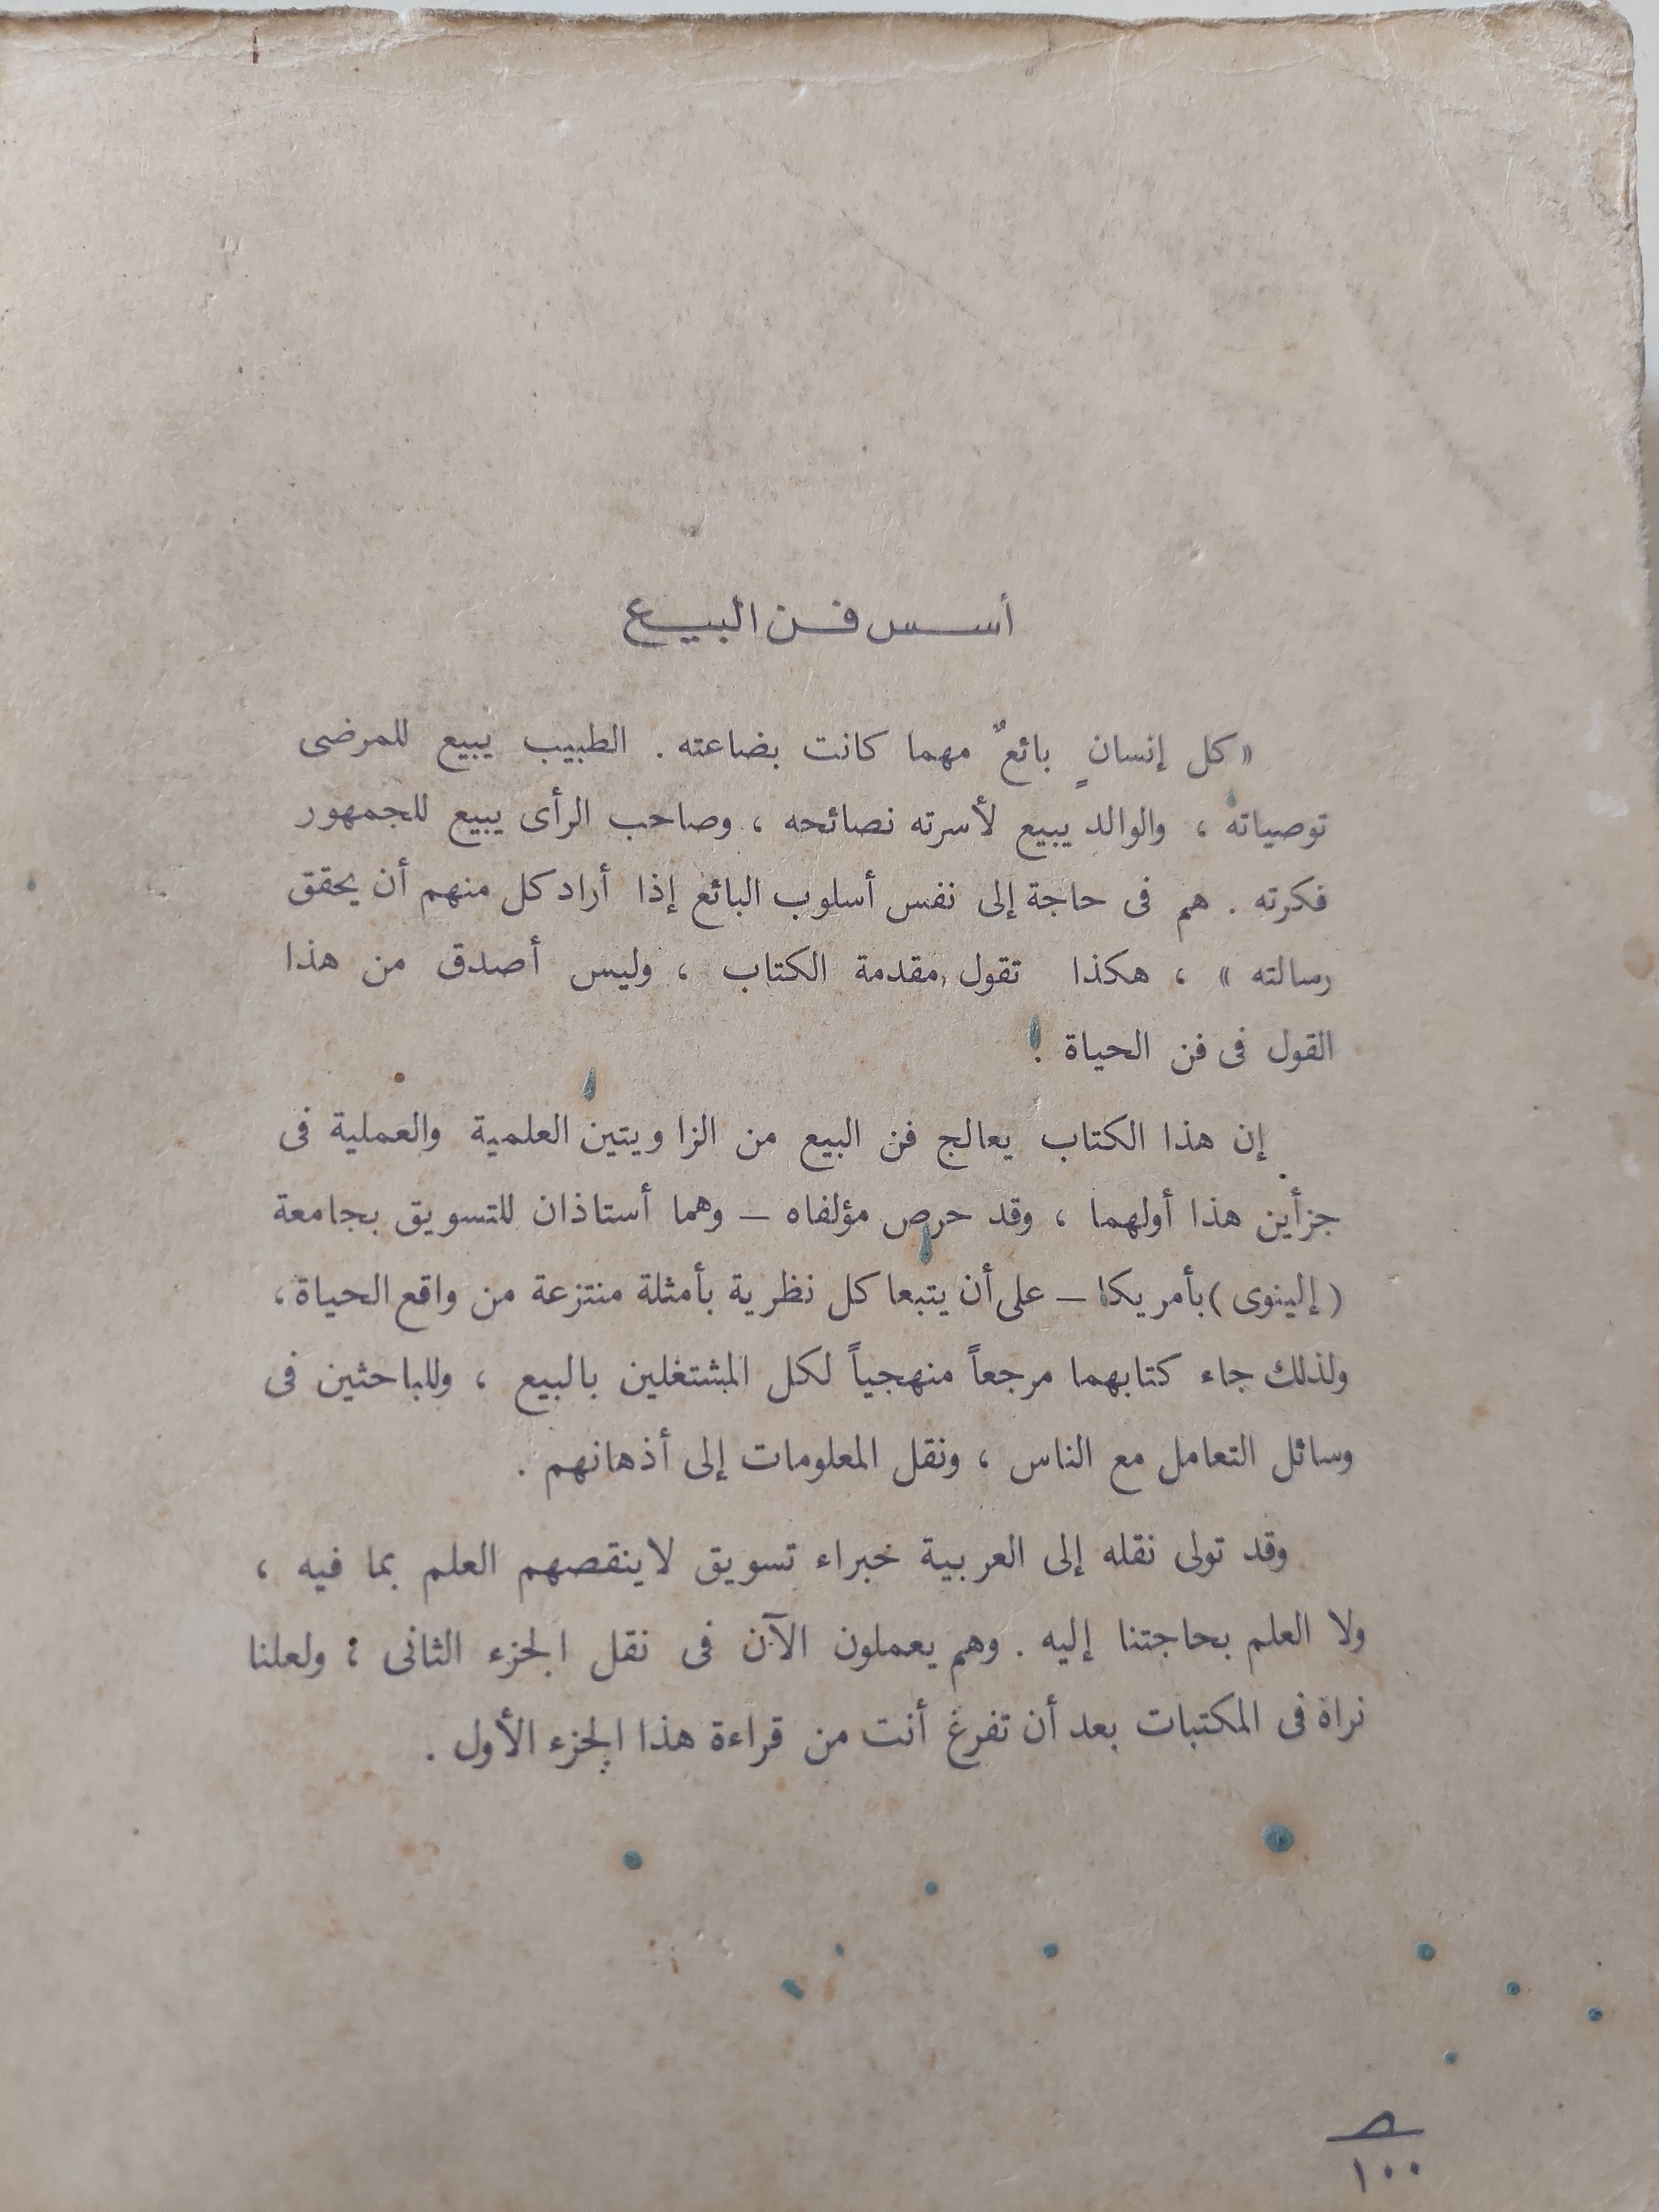 أسس فن البيع
«كل إنسانٍ بائعٌ مهما كانت بضاعته . الطبيب يبيع للمرضى
توصياته ، والوالد يبيع لأسرته نصائحه ، وصاحب الرأى يبيع للجمهور
فكرته . هم فى حاجة إلى نفس أسلوب البائع إذا أراد كل منهم أن يحقق
رسالته » ، هكذا تقول مقدمة الكتاب ، وليس أصدق من هذا
القول فى فن الحياة .
إن هذا الكتاب يعالج فن البيع من الزاويتين العلمية والعملية فى
جزأين هذا أولهما ، وقد حرص مؤلفاه – وهما أستاذان للتسويق بجامعة
(إلينوى) بأمريكا – على أن يتبعا كل نظرية بأمثلة منتزعة من واقع الحياة ،
ولذلك جاء كتابهما مرجعاً منهجياً لكل المشتغلين بالبيع ، وللباحثين فى
وسائل التعامل مع الناس ، ونقل المعلومات إلى أذهانهم .
وقد تولى نقله إلى العربية خبراء تسويق لاينقصهم العلم بما فيه ،
ولا العلم بحاجتنا إليه . وهم يعملون الآن فى نقل الجزء الثانى ؛ ولعلنا
نراة فى المكتبات بعد أن تفرغ أنت من قراءة هذا الجزء الأول .
١٠٠